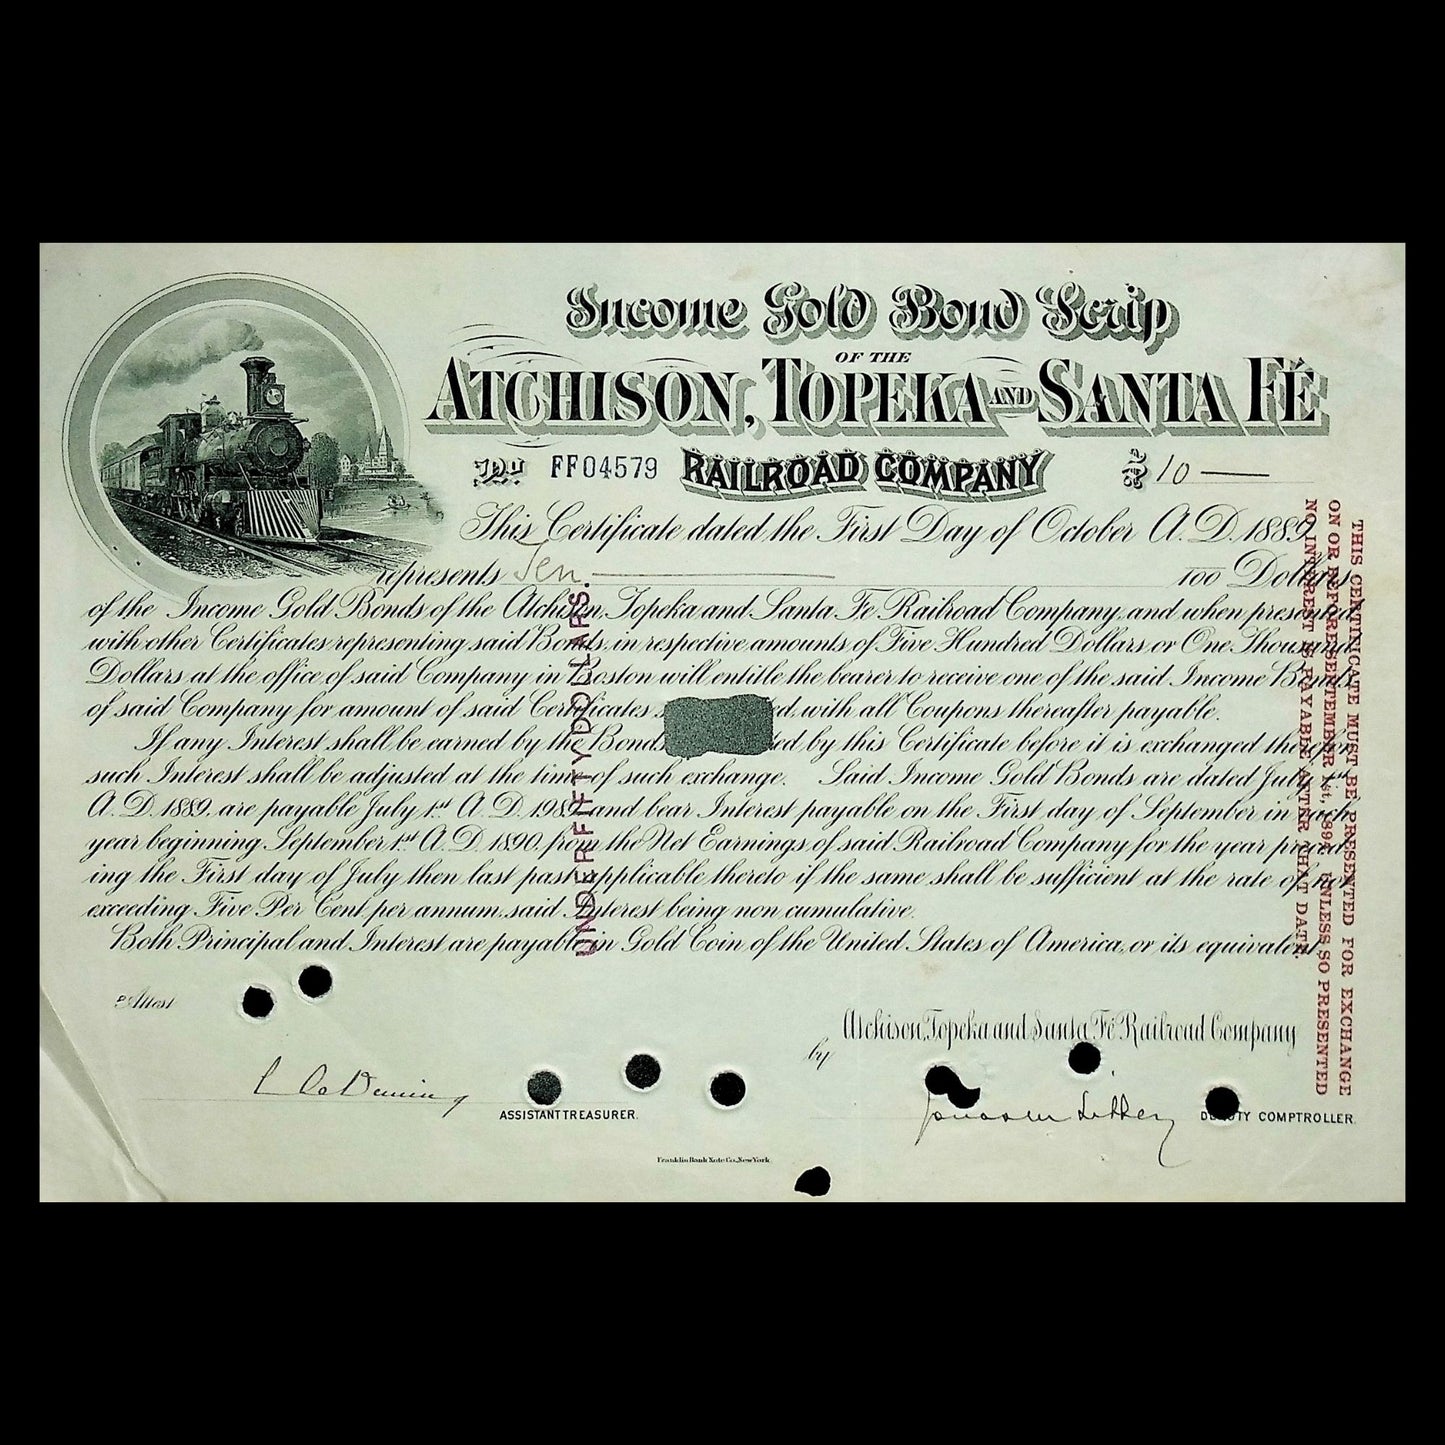 Income Gold Bond Scrip
OF THE
ATCHISON, TOPEKA AND SANTA FÉ
No. FF04579 RAILROAD COMPANY $10
This Certificate dated the First Day of October A.D. 1889,
represents Ten 100 Dollars
of the Income Gold Bonds of the Atchison, Topeka and Santa Fe Railroad Company, and when presented
with other Certificates representing said Bonds, in respective amounts of Five Hundred Dollars or One Thousand
Dollars at the office of said Company in Boston will entitle the bearer to receive one of the said Income Bonds
of said Company for amount of said Certificates ed, with all Coupons thereafter payable.
If any Interest shall be earned by the Bond ted by this Certificate before it is exchanged therefor
such Interest shall be adjusted at the time of such exchange. Said Income Gold Bonds are dated July 1st
A.D. 1889, are payable July 1st A.D. 1989 and bear Interest payable on the First day of September in each
year beginning September 1st A.D. 1890, from the Net Earnings of said Railroad Company for the year preced-
ing the First day of July then last past, applicable thereto if the same shall be sufficient at the rate of not
exceeding Five Per Cent per annum, said Interest being non cumulative.
Both Principal and Interest are payable in Gold Coin of the United States of America, or its equivalent.
UNDER FIFTY DOLLARS.
THIS CERTIFICATE MUST BE PRESENTED FOR EXCHANGE
ON OR BEFORE SEPTEMBER 1st, 1891. UNLESS SO PRESENTED
NO INTEREST IS PAYABLE AFTER THAT DATE.
Attest
Atchison, Topeka and Santa Fé Railroad Company
by
ASSISTANT TREASURER.
DEPUTY COMPTROLLER.
Franklin Bank Note Co., New York.